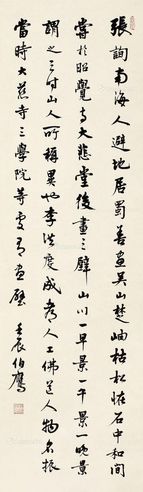 張詢南海人避地居蜀善畫吳山楚岫枯松怪石中和間
嘗於昭覺寺大悲堂後畫三壁山川一早景一午景一晚景
謂之三時山人所稱異也李洪度成都人工佛道人物名振
當時大慈寺三學院等處有畫壁 壬辰伯鷹